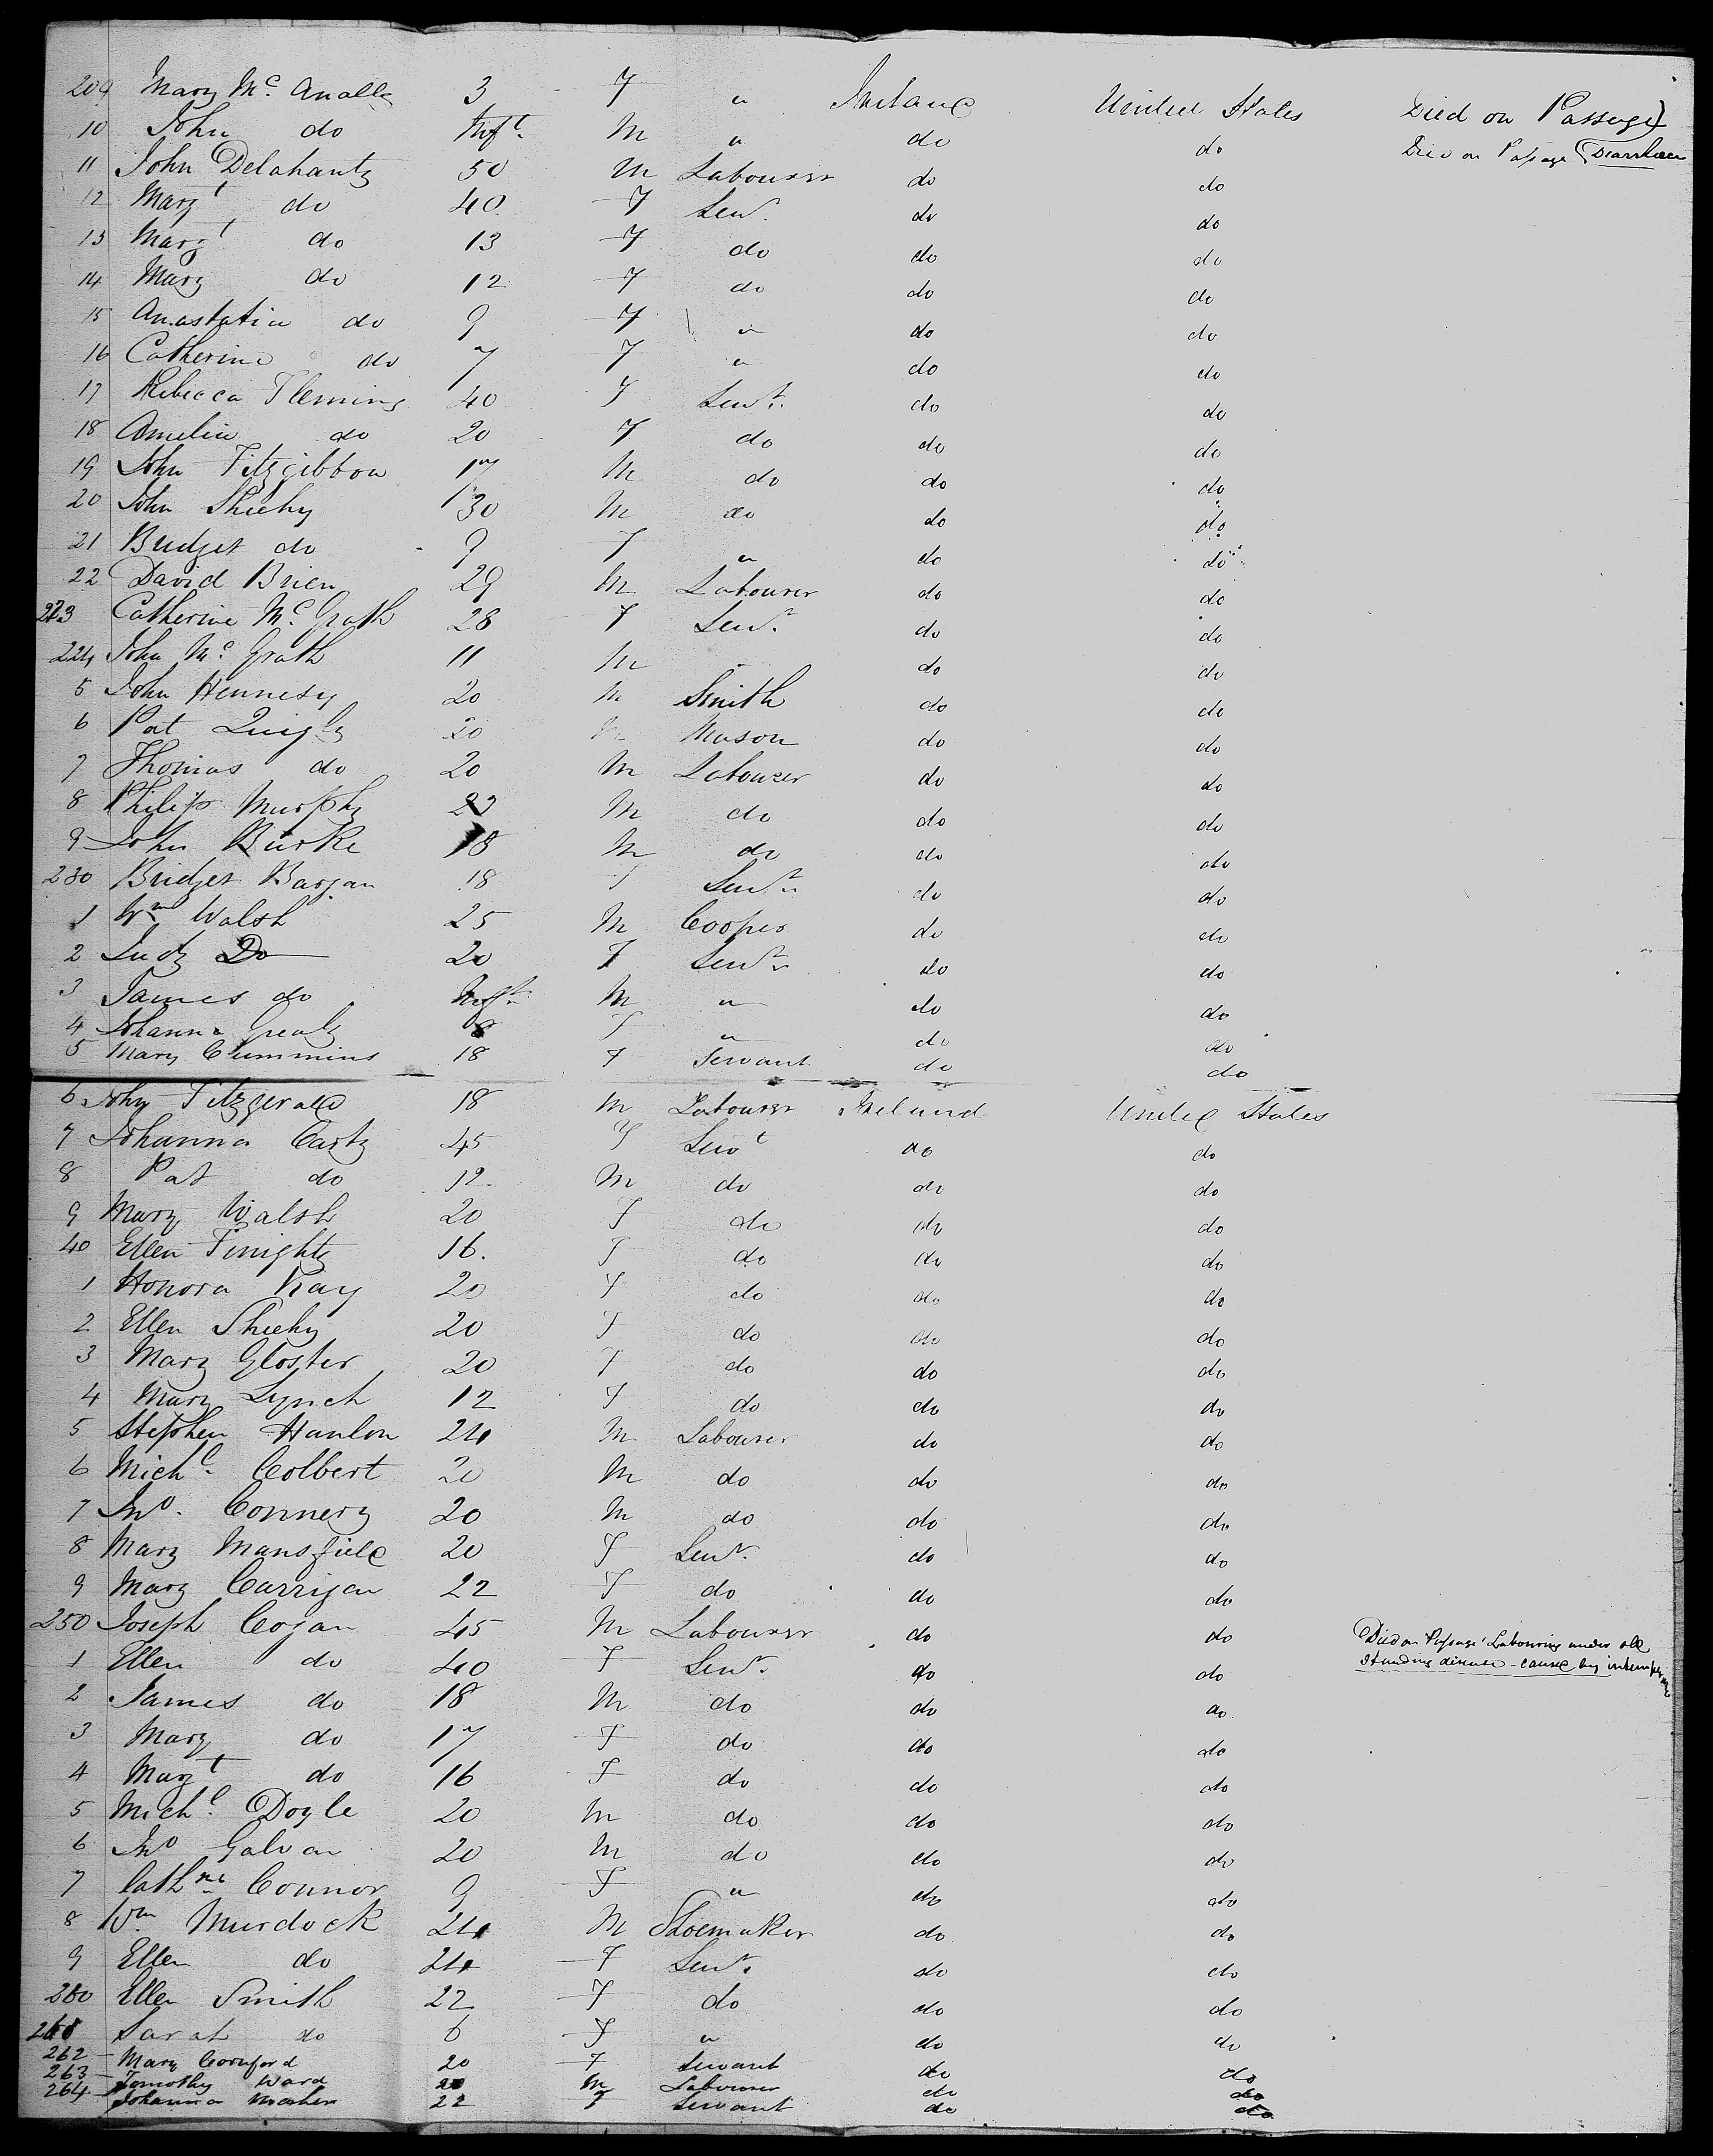 209 Mary Mc. Anally 3 F " Ireland United States Died on Passage)
10 John do Inft. M " do do Died on Passage (Diarrhoea
11 John Delahanty 50 M Labourer do do
12 Margt do 40 F Servt. do do
13 Margt do 13 F do do do
14 Mary do 12 F do do do
15 Anastatia do 9 F " do do
16 Catherine do 7 F " do do
17 Rebecca Fleming 40 F Servt. do do
18 Amelia do 20 F do do do
19 John Fitzgibbon 17 M do do do
20 John Sheehy 30 M do do do
21 Bridget do 9 F " do do
22 David Brien 29 M Labourer do do
223 Catherine Mc. Grath 28 F Servt. do do
224 John Mc. Grath 11 M do do
5 John Hennesy 20 M Smith do do
6 Pat Quigly 20 M Mason do do
7 Thomas do 20 M Labourer do do
8 Philip Murphy M do do do
9 John Burke 18 M do do do
230 Bridget Bargan 18 F Servt. do do
1 Wm Walsh 25 M Cooper do do
2 Judy Do 20 F Servt. do do
3 James do Inft. M " do do
4 Johanna Grealy 8 F " do do
5 Mary Cummins 18 F Servant do do
6 John Fitzgerald 18 M Labourer Ireland United States
7 Johanna Carty 45 F Servt do do
8 Pat do 12 M do do do
9 Mary Walsh 20 F do do do
40 Ellen Finighty 16. F do do do
1 Honora Kay 20 F do do do
2 Ellen Sheehy 20 F do do do
3 Mary Gloster 20 F do do do
4 Mary Lynch 12 F do do do
5 Stephen Hanlon 24 M Labourer do do
6 Michl. Colbert 20 M do do do
7 Jno. Connery 20 M do do do
8 Mary Mansfield 20 F Servt. do do
9 Mary Carrigan 22 F do do do
250 Joseph Cogan 45 M Labourer do do Died on Passage Labouring under old
1 Ellen do 40 F Servt. do do standing disease - caused by intemperance
2 James do 18 M do do do
3 Mary do 17 F do do do
4 Margt do 16 F do do do
5 Michl. Doyle 20 M do do do
6 Jno Galvan 20 M do do do
7 Cathne Connor 9 F " do do
8 Wm Murdock 24 M Shoemaker do do
9 Ellen do 24 F Servt. do do
260 Ellen Smith 22 F do do do
261 Sarah do 6 F " do do
262 Mary Cornford 20 F Servant do do
263 Tomothy Ward M Labourer do do
264 Johanna 22 F Servant do do